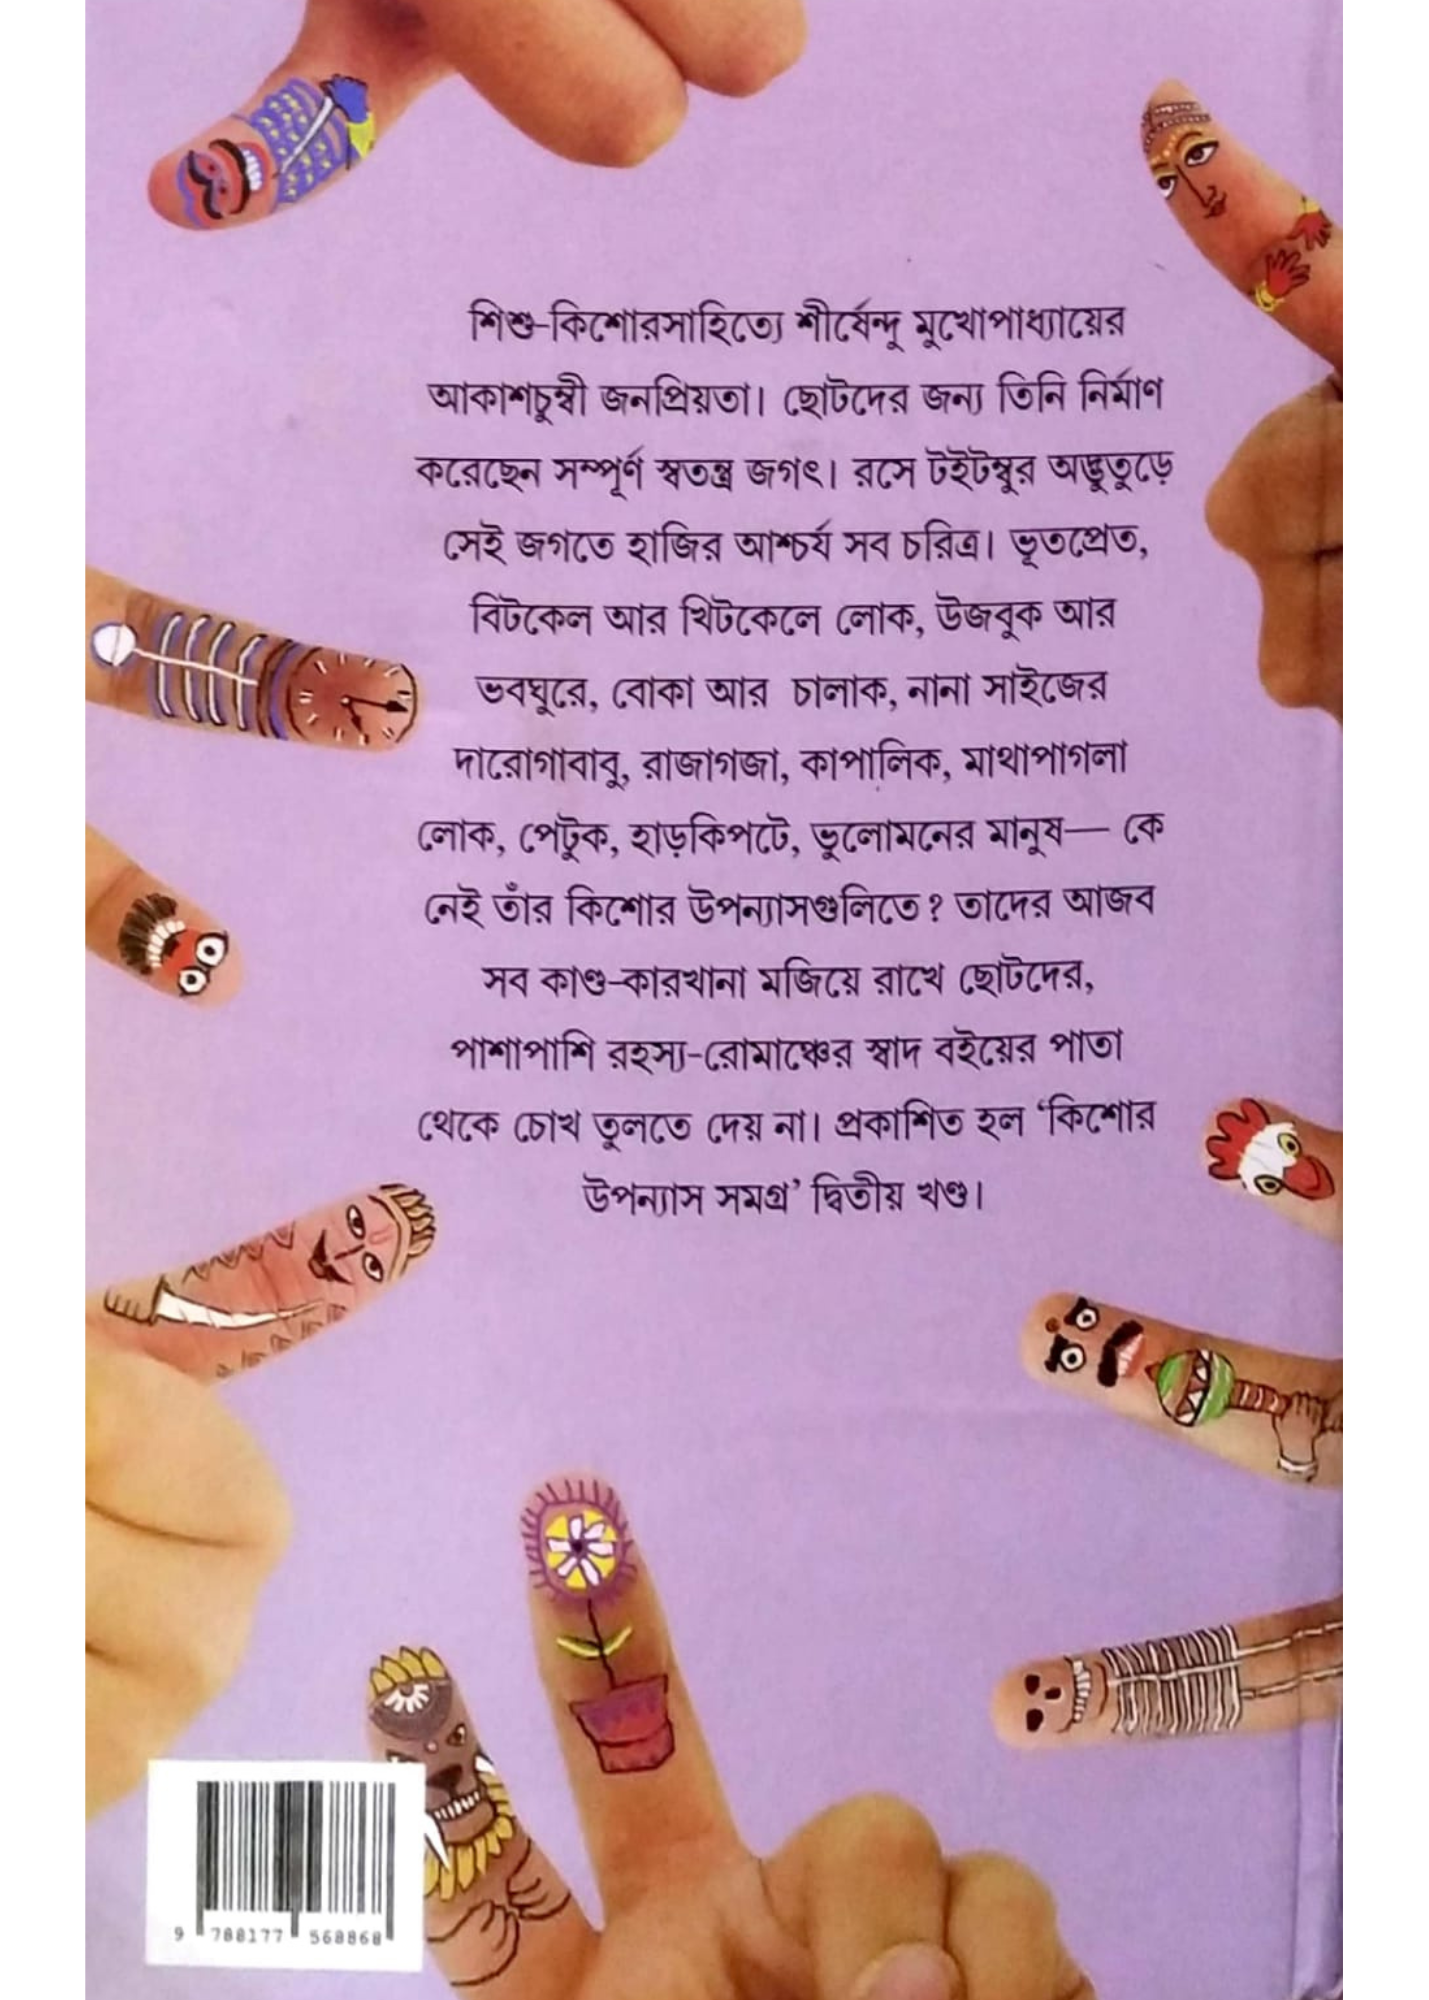 শিশু-কিশোরসাহিত্যে শীর্ষেন্দু মুখোপাধ্যায়ের
আকাশচুম্বী জনপ্রিয়তা। ছোটদের জন্য তিনি নির্মাণ
করেছেন সম্পূর্ণ স্বতন্ত্র জগৎ। রসে টইটম্বুর অদ্ভুতুড়ে
সেই জগতে হাজির আশ্চর্য সব চরিত্র। ভূতপ্রেত,
বিটকেল আর খিটকেলে লোক, উজবুক আর
ভবঘুরে, বোকা আর চালাক, নানা সাইজের
দারোগাবাবু, রাজাগজা, কাপালিক, মাথাপাগলা
লোক, পেটুক, হাড়কিপটে, ভুলোমনের মানুষ— কে
নেই তাঁর কিশোর উপন্যাসগুলিতে? তাদের আজব
সব কাণ্ড-কারখানা মজিয়ে রাখে ছোটদের,
পাশাপাশি রহস্য-রোমাঞ্চের স্বাদ বইয়ের পাতা
থেকে চোখ তুলতে দেয় না। প্রকাশিত হল ‘কিশোর
উপন্যাস সমগ্র’ দ্বিতীয় খণ্ড।
9 788177 568868